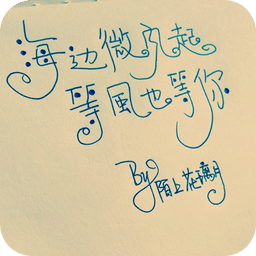 海边微风起
等風也等你
By 陌上花璃月